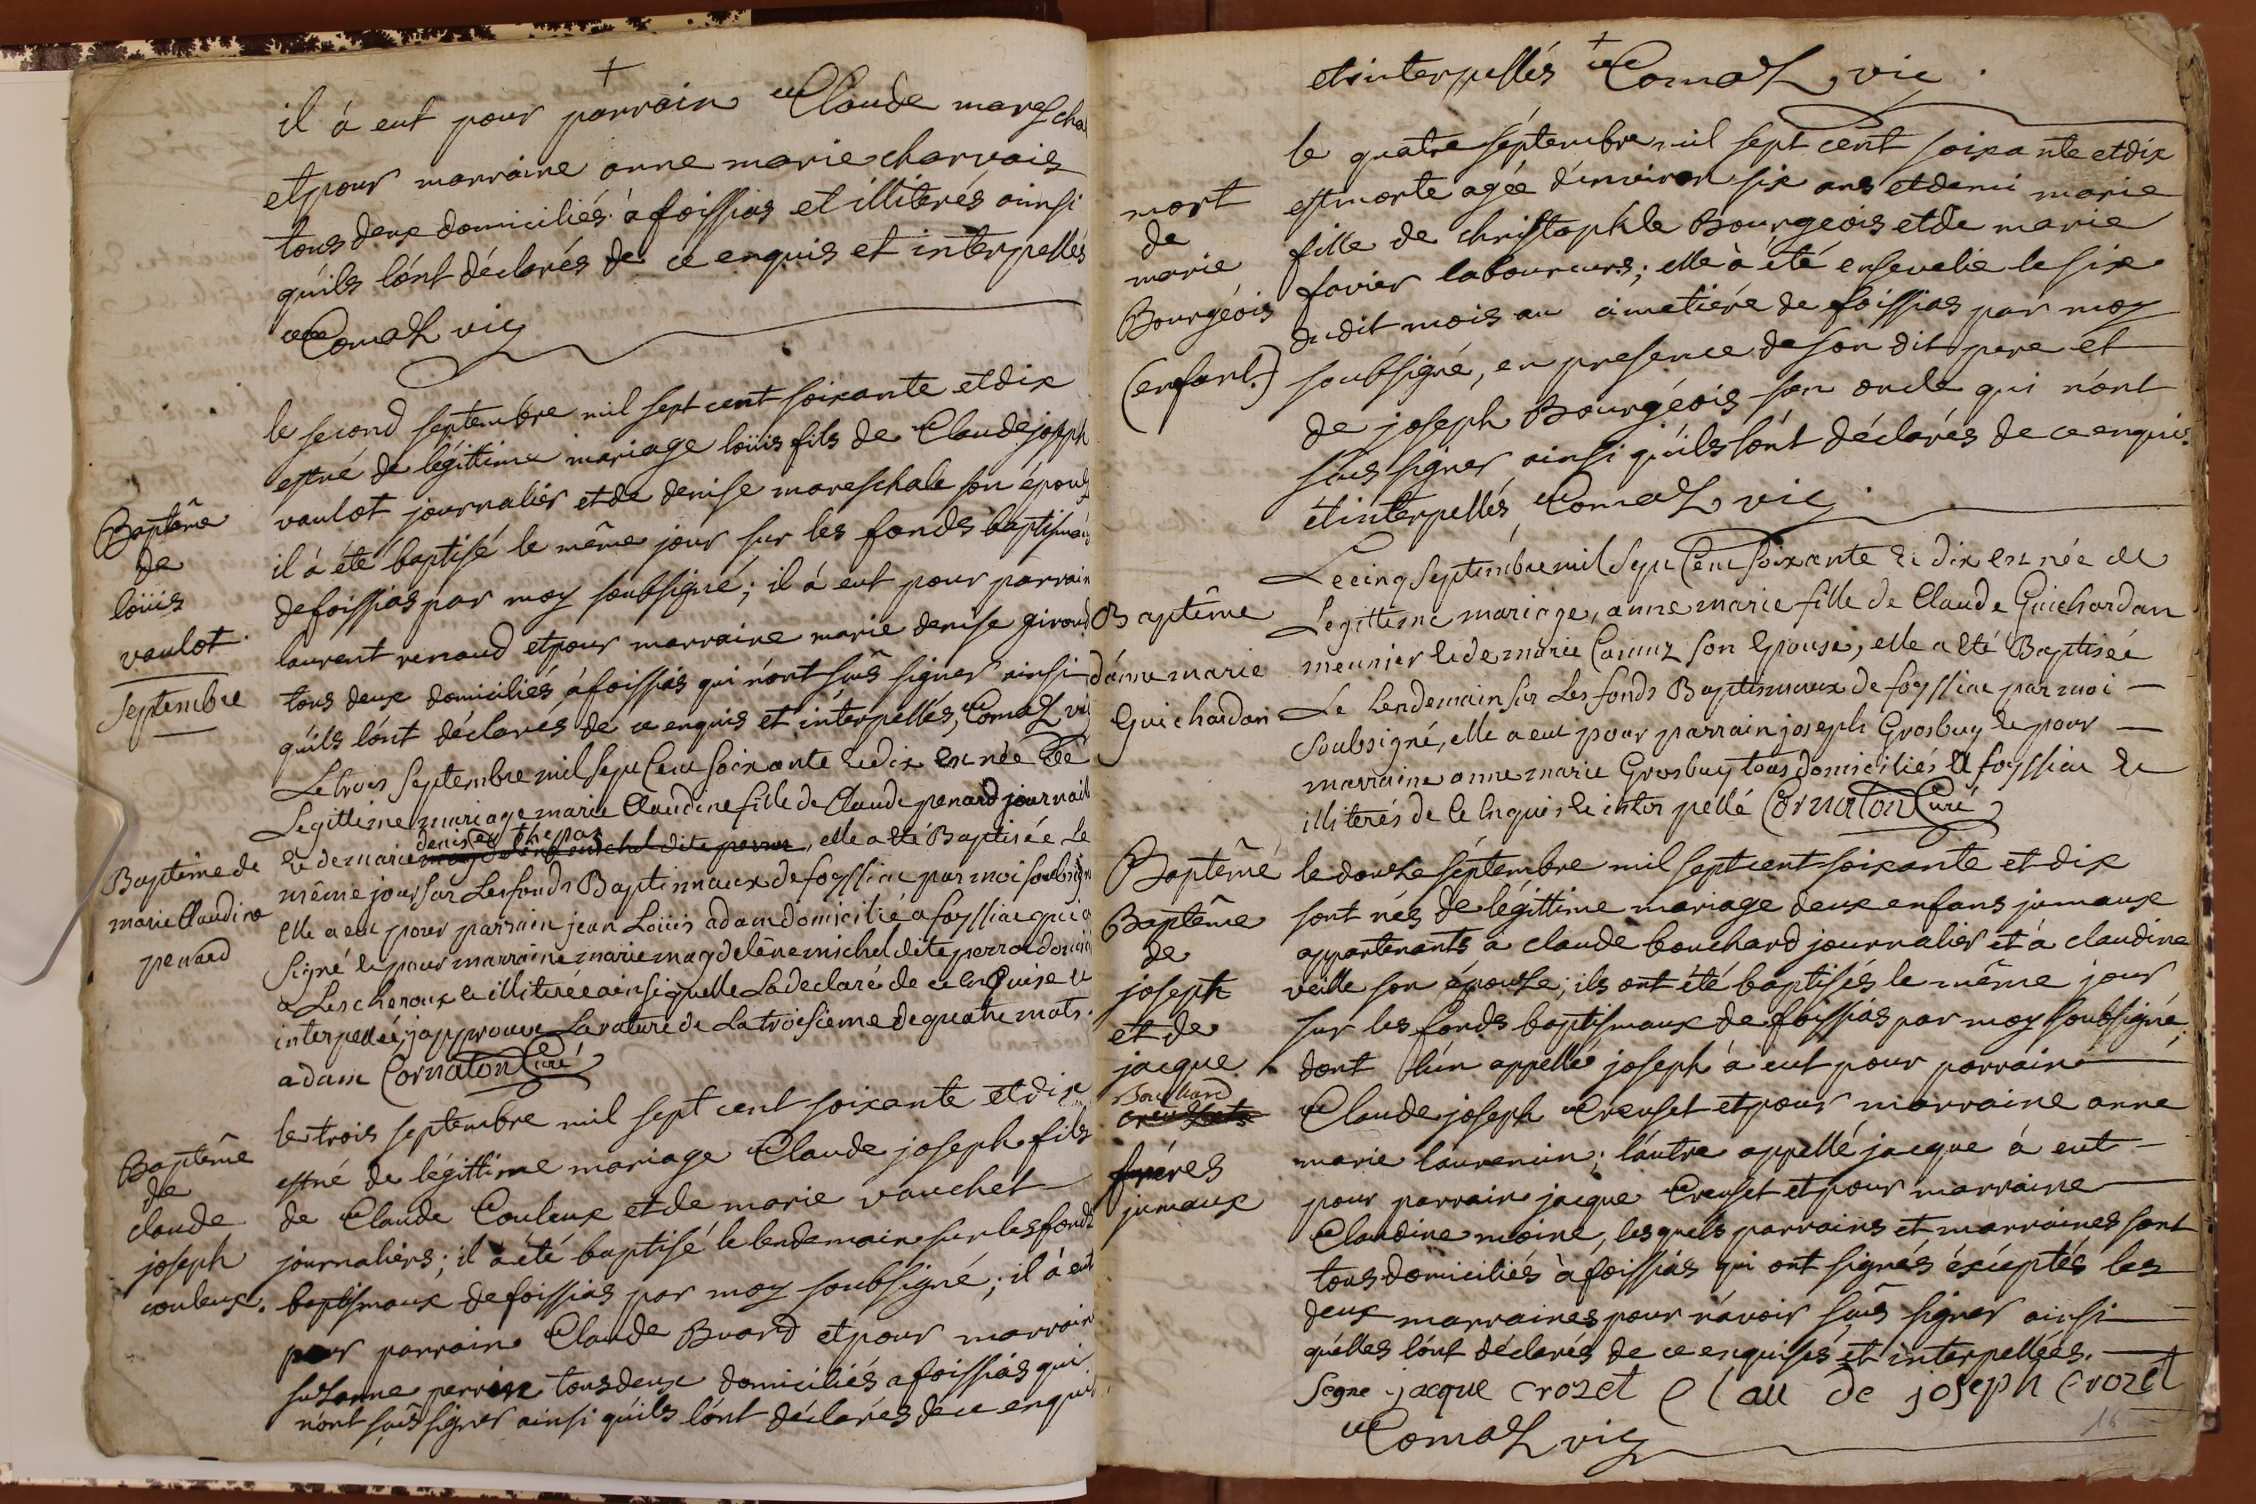 il á eut pour parrain Claude marescha
et pour marraine anne marie charvais
tous deux domiciliés à foissias et illiterés ainsi
qu'ils lónt déclarés de ce enquis et interpellés
Comaz vic
Baptême
de
loüis
vaulot
septembre
le sécond septembre mil sept cent soixante et dix
est né de légittime mariage loüis fils de Claude joseph
vaulot journalier et de denise mareschale son épous
il á été baptisé le même jour sur les fonds baptismau
de foissias par moy soubsigné; il á eut pour parrain
laurent renaud et pour marraine marie denise giroud
tous deux domiciliés à foissias qui n'ont sçus signer ainsi
qu'ils lónt déclarés de ce enquis et interpellés, Comaz vic
Baptême de
marie Claudine
penard
Le trois Septembre mil Sept Cent Soixante et dix est née de
Legittime mariage marie Claudine fille de Claude penard journali
denise thepaz
et de marie magdelene michel dite perra, elle a été Baptisée Le
même jour sur Les fonds Baptismaux de foyssiac par moi soubsign
elle a eut pour parrain jean Loüis adam domicilié a foyssiac qui a
signé et pour marraine marie magdelêne michel dite perra domici
a Lescheroux et illiterée ainsi quelle La declaré de ce enquise et
interpellée, japprouve La rature de La troisieme de quatre mots.
adam Cornaton Curé
Baptême
de
claude
joseph
couleux.
le trois septembre mil sept cent soixante et dix
est né de légittime mariage Claude joseph fils
de Claude Couleux et de marie vauchet
journaliers; il à été baptisé le lendemain sur les fonds
baptismaux de foissias par moy soubsigné; il à eut
pour parrain Claude Buard et pour marrain
susanne perrin tous deux domiciliés a foissias qui
n'ont sçus signer ainsi quils lónt déclarés de ce enquis
et interpellés Comaz vic.
mort
de
marie
Bourgéois
(enfant.)
le quatre séptembre mil sept cent soixante et dix
est morte agée d'environ six ans et demi marie
fille de christophle Bourgeois et de marie
favier laboureurs; elle à été ensevelie le six
du dit mois au cimetiére de foissias par moy
soubsigné, en presence de son dit pere et
de joseph Bourgéois son oncle qui n'ont
sçus signer ainsi qu'ils lónt déclarés de ce enquis
et interpellés Comaz vic
Baptême
d'anne marie
Guichardan
Le cinq Septembre mil Sept Cent Soixante et dix est née de
Legittime mariage, anne marie fille de Claude Guichardan
meunier et de marie Camuz son Epouse, elle a été Baptisée
Le Lendemain sur Les fonds Baptismaux de foyssiac par moi
Soubsigné, elle a eut pour parrain joseph Grosbuy et pour
marraine anne marie Grosbuy tous domiciliés a foyssiac et
illiterés de ce Enquis et interpellé Cornaton Curé
Baptême
Baptême
de
joseph
et de
jacque
Bouchard
freres
jumaux
le douze séptembre mil sept cent soixante et dix
sont nés de légittime mariage deux enfans jumaux
appartenants a claude bouchard journalier et á claudine
veille son épouze; ils ont été baptisés le même jour
sur les fonds baptismaux de foissias par moy soubsigné;
dont l'ún appellé joseph á eut pour parrain
Claude joseph Creuset et pour marraine anne
marie laurencin; láutre appellé jacque á eut
pour parrain jacque Creuset et pour marraine
Claudine moine, lesquels parrains et marraines sont
tous domiciliés à foissias qui ont signés éxéptés les
deux marraines pour n'avoir sçus signer ainsi
quélles lónt déclarés de ce enquisés et interpellées.
Segne jacque crozet Clau de joseph Crozet
Comaz vic
16